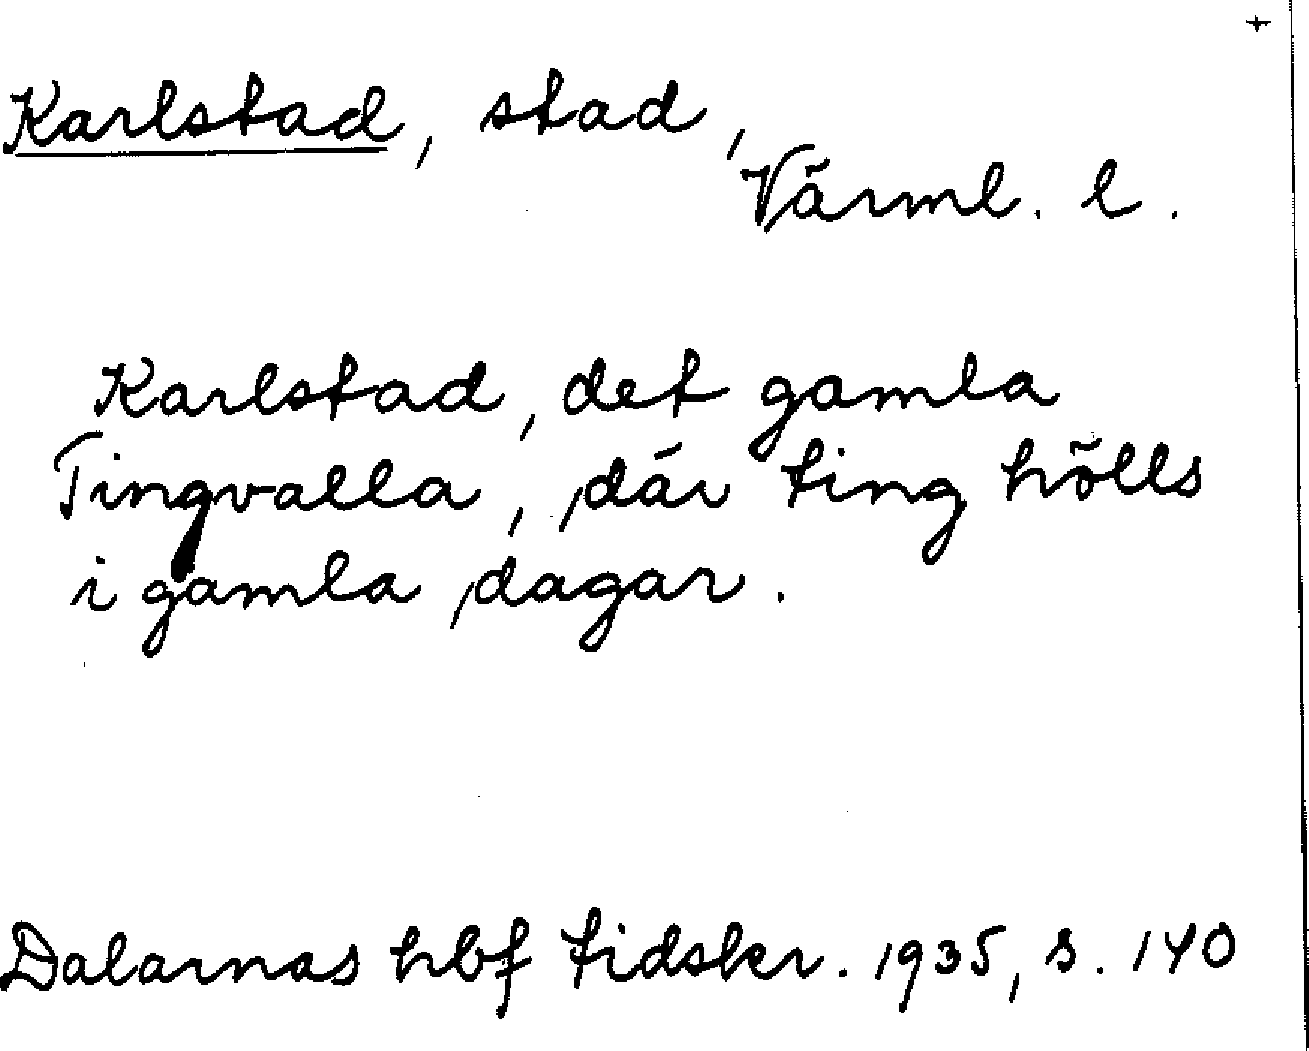 +
Karlstad, stad,
Värml. l.
Karlstad, det gamla
Tingvalla, där ting hölls
i gamla dagar.
Dalarnas hbf tidskr. 1935, s. 140